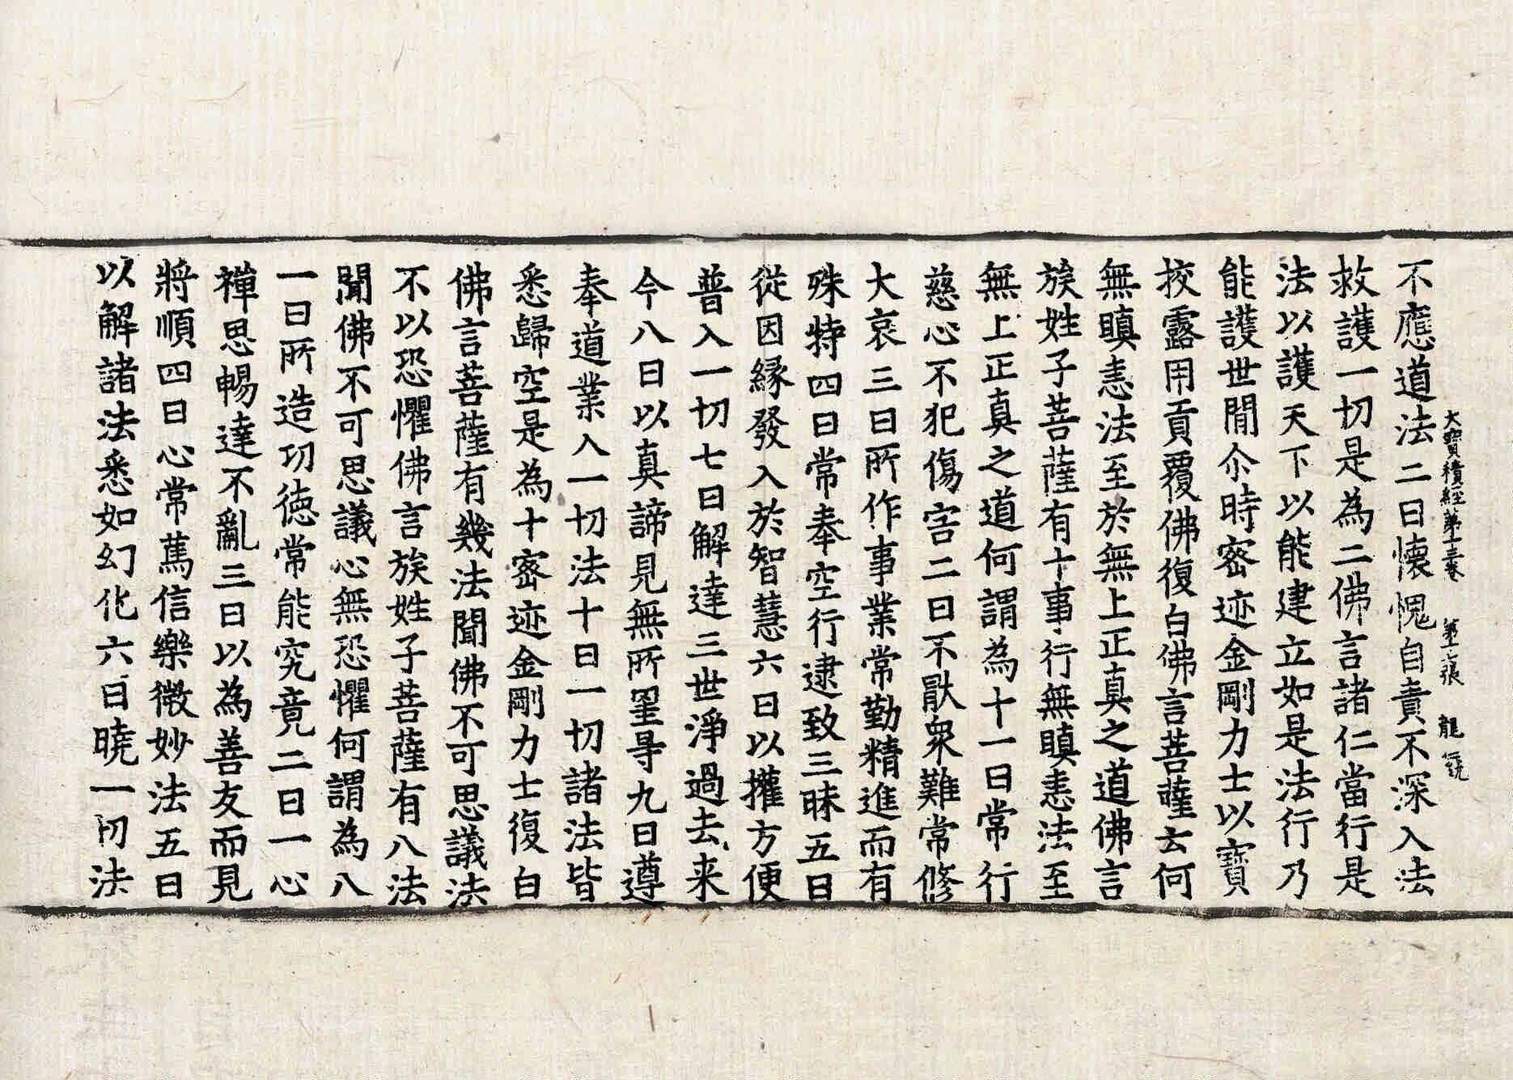 大寳積經第十三卷 第十一張 龍號
不應道法二曰懷愧自責不深入法
救護一切是為二佛言諸仁當行是
法以護天下以能建立如是法行乃
能護世閒尒時密迹金剛力士以寶
挍露用貢覆佛復白佛言菩薩云何
無瞋恚法至於無上正真之道佛言
族姓子菩薩有十事行無瞋恚法至
無上正真之道何謂為十一曰常行
慈心不犯傷害二曰不猒衆難常修
大哀三曰所作事業常勤精進而有
殊特四曰常奉空行逮致三昧五曰
從因緣發入於智慧六曰以攉方便
普入一切七曰解達三世淨過去来
今八曰以真諦見無所罣㝵九曰遵
奉道業入一切法十曰一切諸法皆
悉歸空是為十密迹金剛力士復白
佛言菩薩有幾法聞佛不可思議法
不以恐懼佛言族姓子菩薩有八法
聞佛不可思議心無恐懼何謂為八
一曰所造功德常能究竟二曰一心
禪思暢達不亂三曰以為善友而見
將順四曰心常篤信樂微妙法五曰
以解諸法悉如幻化六曰曉一切法